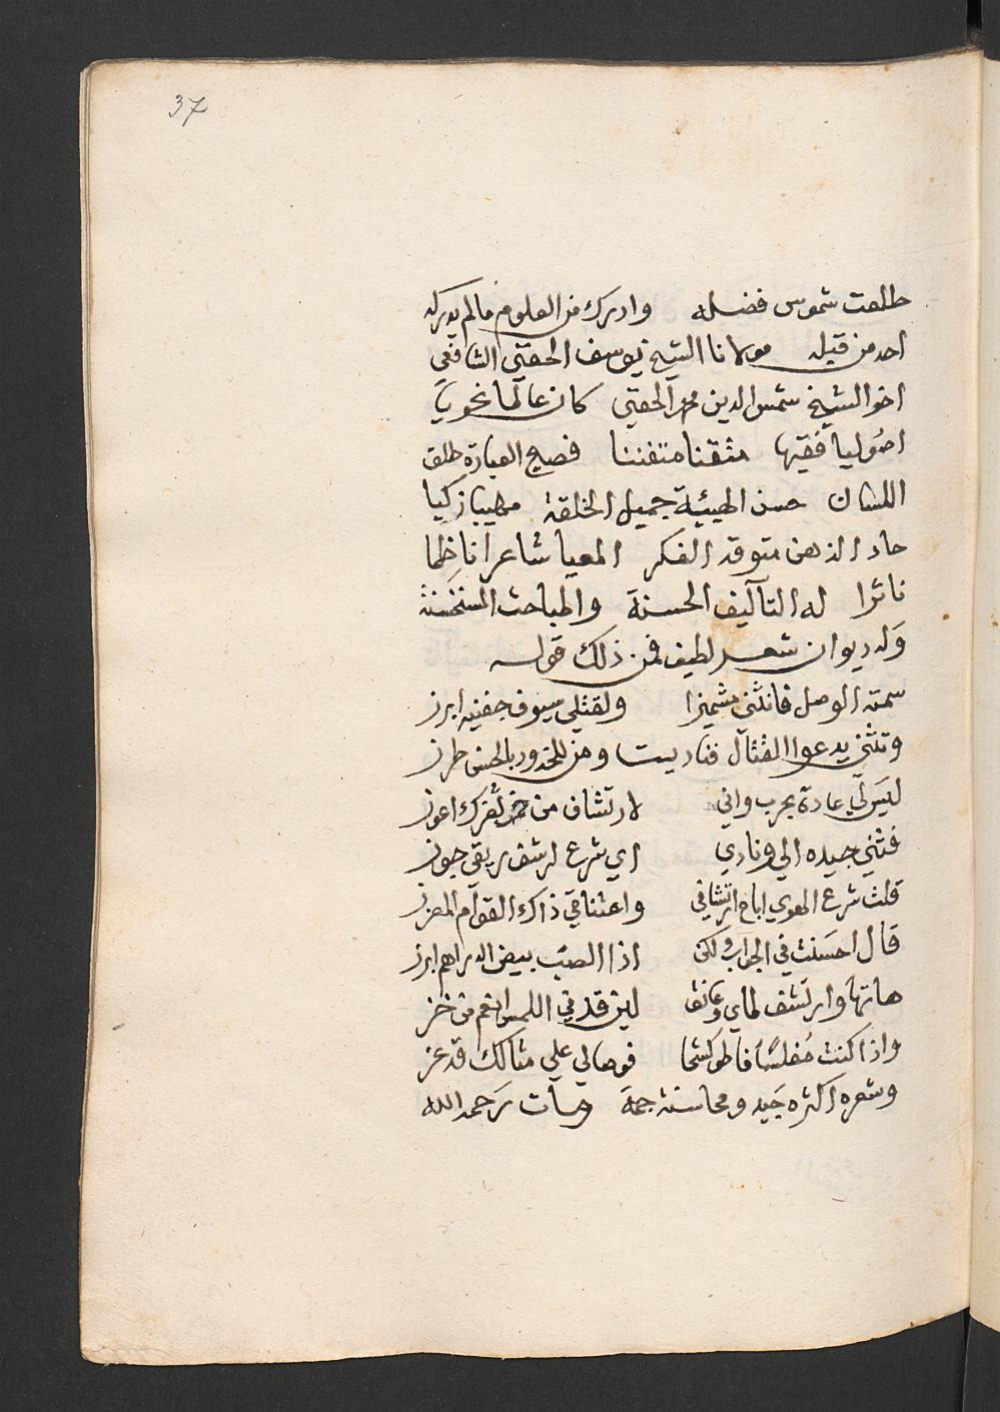 37
طلعت شموس فضله وادرك من العلوم مالم يدركه
احد من قبله مولانا الشيخ يوسف الحفني الشافعي
اخو الشيخ شمس الدين محمد الحفني كان عالما نحويا
اصوليا فقيها متقنا متفننا فصيح العبارة طلق
اللسان حسن الهيئة جميل الخلقة مهيبا زكيا
حاد الذهن متوقد الفكر المعيا شاعرا ناظما
ناثرا له التآليف الحسنة والمباحث المستحسنة
وله ديوان شعر لطيف فمن ذلك قوله
سمته الوصل فانثنى مشميزا ولقتلي سيوف جفنيه ابرز
وتثنى يدعوا القتال فناديت ومن للخدود بالحسن طرز
ليس لي عادة بحرب واني لارتشاف من خمر ثغرك اعوز
فثنى جيده الي ونادي اي شرع لرشف ريقي جوز
قلت شرع الهوي اباح ارتشافي واعتناقي ذاك القوام المهزز
قال احسنت في الجواب ولكن اذا الصب بيض الدراهم ابرز
هاتها وارتشف لماي وعانق لين قد في اللمس انعم من خز
واذا كنت مفلسا فاطو كشحا فوصالي علي مثالك قد عز
وشعره اكثره جيد ومحاسنه جمة ومات رحمه الله